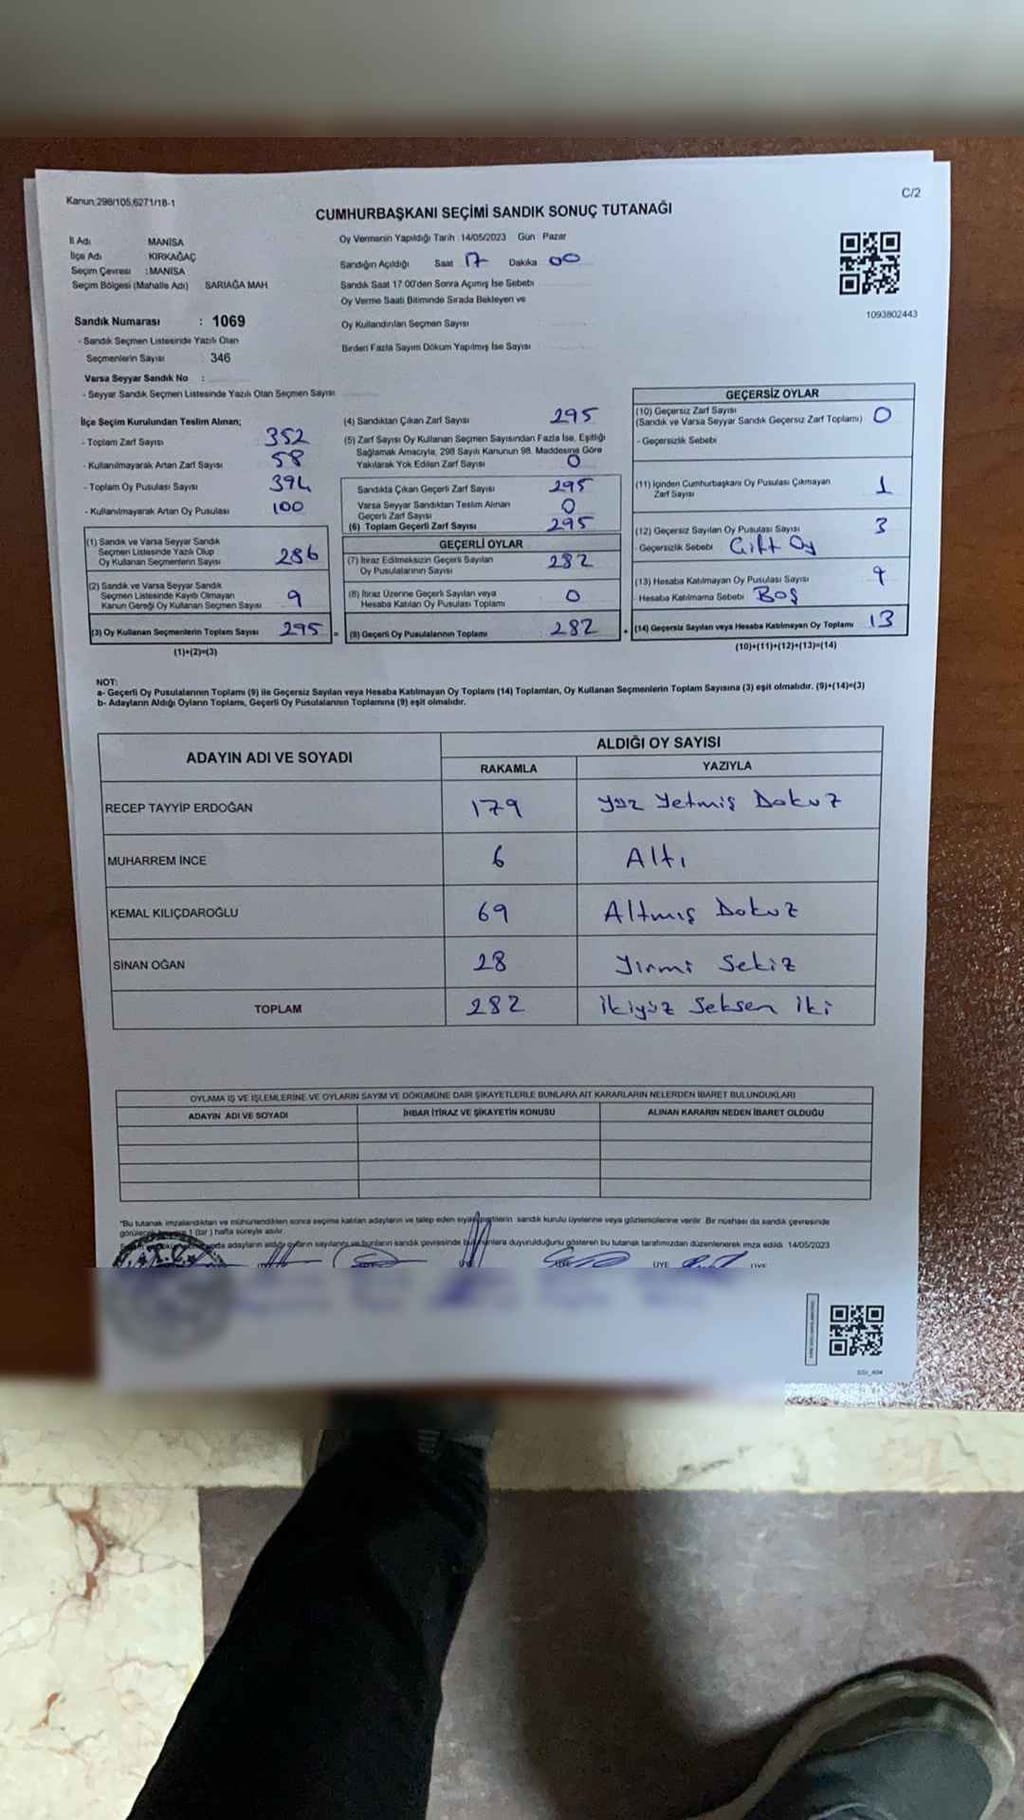 Kanun:298/105,6271/18-1
C/2
CUMHURBAŞKANI SEÇİMİ SANDIK SONUÇ TUTANAĞI
İl Adı MANİSA
İlçe Adı KIRKAĞAÇ
Seçim Çevresi : MANİSA
Seçim Bölgesi (Mahalle Adı) SARIAĞA MAH
Oy Vermenin Yapıldığı Tarih :14/05/2023 Gün : Pazar
Sandığın Açıldığı Saat 17 Dakika 00
Sandık Saat 17:00'den Sonra Açımış İse Sebebi
Oy Verme Saati Bitiminde Sırada Bekleyen ve
Oy Kullandırılan Seçmen Sayısı
Birden Fazla Sayım Döküm Yapılmış İse Sayısı
1093802443
Sandık Numarası : 1069
- Sandık Seçmen Listesinde Yazılı Olan
Seçmenlerin Sayısı 346
Varsa Seyyar Sandık No :
- Seyyar Sandık Seçmen Listesinde Yazılı Olan Seçmen Sayısı
İlçe Seçim Kurulundan Teslim Alınan;
- Toplam Zarf Sayısı 352
- Kullanılmayarak Artan Zarf Sayısı 58
- Toplam Oy Pusulası Sayısı 394
- Kullanılmayarak Artan Oy Pusulası 100
(1) Sandık ve Varsa Seyyar Sandık
Seçmen Listesinde Yazılı Olup
Oy Kullanan Seçmenlerin Sayısı 286
(2) Sandık ve Varsa Seyyar Sandık
Seçmen Listesinde Kayıtlı Olmayan
Kanun Gereği Oy Kullanan Seçmen Sayısı 9
(3) Oy Kullanan Seçmenlerin Toplam Sayısı 295
(1)+(2)=(3)
(4) Sandıktan Çıkan Zarf Sayısı 295
(5) Zarf Sayısı Oy Kullanan Seçmen Sayısından Fazla İse, Eşitliği
Sağlamak Amacıyla, 298 Sayılı Kanunun 98. Maddesine Göre
Yakılarak Yok Edilen Zarf Sayısı 0
Sandıkta Çıkan Geçerli Zarf Sayısı 295
Varsa Seyyar Sandıktan Teslim Alınan
Geçerli Zarf Sayısı 0
(6) Toplam Geçerli Zarf Sayısı 295
GEÇERLİ OYLAR
(7) İtiraz Edilmeksizin Geçerli Sayılan
Oy Pusulalarının Sayısı 282
(8) İtiraz Üzerine Geçerli Sayılan veya
Hesaba Katılan Oy Pusulası Toplamı 0
(9) Geçerli Oy Pusulalarının Toplamı 282
GEÇERSİZ OYLAR
(10) Geçersiz Zarf Sayısı
(Sandık ve Varsa Seyyar Sandık Geçersiz Zarf Toplamı) 0
- Geçersizlik Sebebi
(11) İçinden Cumhurbaşkanı Oy Pusulası Çıkmayan
Zarf Sayısı 1
(12) Geçersiz Sayılan Oy Pusulası Sayısı 3
Geçersizlik Sebebi Çift Oy
(13) Hesaba Katılmayan Oy Pusulası Sayısı 9
- Hesaba Katılmama Sebebi Boş
(14) Geçersiz Sayılan veya Hesaba Katılmayan Oy Toplamı 13
(10)+(11)+(12)+(13)=(14)
NOT:
a- Geçerli Oy Pusulalarının Toplamı (9) ile Geçersiz Sayılan veya Hesaba Katılmayan Oy Toplamı (14) Toplamları, Oy Kullanan Seçmenlerin Toplam Sayısına (3) eşit olmalıdır. (9)+(14)=(3)
b- Adayların Aldığı Oyların Toplamı, Geçerli Oy Pusulalarının Toplamına (9) eşit olmalıdır.
ADAYIN ADI VE SOYADI ALDIĞI OY SAYISI
RAKAMLA YAZIYLA
RECEP TAYYİP ERDOĞAN 179 Yüz Yetmiş Dokuz
MUHARREM İNCE 6 Altı
KEMAL KILIÇDAROĞLU 69 Altmış Dokuz
SİNAN OĞAN 28 Yirmi Sekiz
TOPLAM 282 İkiyüz Seksen İki
OYLAMA İŞ VE İŞLEMLERİNE VE OYLARIN SAYIM VE DÖKÜMÜNE DAİR ŞİKAYETLERLE BUNLARA AİT KARARLARIN NELERDEN İBARET BULUNDUKLARI
ADAYIN ADI VE SOYADI İHBAR İTİRAZ VE ŞİKAYETİN KONUSU ALINAN KARARIN NEDEN İBARET OLDUĞU
"Bu tutanak imzalandıktan ve mühürlendikten sonra seçime katılan adayların ve talep eden siyasi partilerin sandık kurulu üyelerine veya gözlemcilerine verilir. Bir nüshası da sandık çevresinde
1 (bir) hafta süreyle asılır.
adayların aldığı oyların sayılarını ve bunların sandık çevresinde duyurulduğunu gösteren bu tutanak tarafımızdan düzenlenerek imza edildi. 14/05/2023
T.C.
ÜYE ÜYE